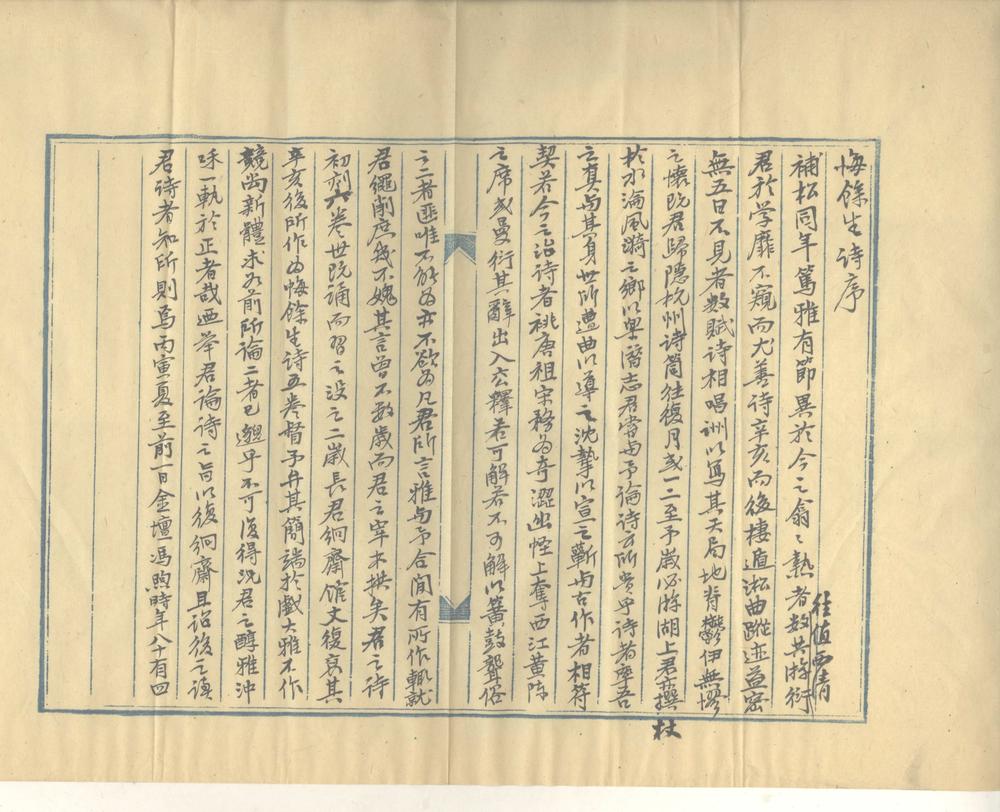 悔餘生詩序
補松同年篤雅有節異於今之翕翕熱者数共游衍
往值西清
君於学靡不窺而尤善詩辛亥而後棲遁淞曲蹤迹益密
無五日不見者数賦詩相唱詶以寫其天局地脊鬱伊無憀
之懷既君歸隱杭州詩筒往復月或一二至予歲必游湖上君輒撰
杖
於水淪風漪之鄉以
志君嘗与予論詩予所貴乎詩者率吾
之真与其身世所遭曲以導之沈摯以宣之蘄与古作者相符
契若今之治詩者祧唐祖宋務為奇澀幽怪上奪西江黃陈
之席或曼衍其辭出入玄釋若可解若不可解以簧鼓聾俗
之二者匪唯不能為亦不欲為凡君所言雅与予合間有所作輒就
君繩削庶幾不媿其言曾不数歲而君之宰木拱矣君之詩
初刻六卷世既誦而習之没之二歲長君絅齋館丈復裒其
辛亥後所作為悔餘生詩五卷督予弁其簡端於戲大雅不作
競尚新體求如前所論二者已邈乎不可復得況君之醇雅沖
咊一執於正者哉迺举君論詩之旨以復絅齋且詔後之讀
君詩者知所則焉丙寅夏至前一日金壇馮煦時年八十有四